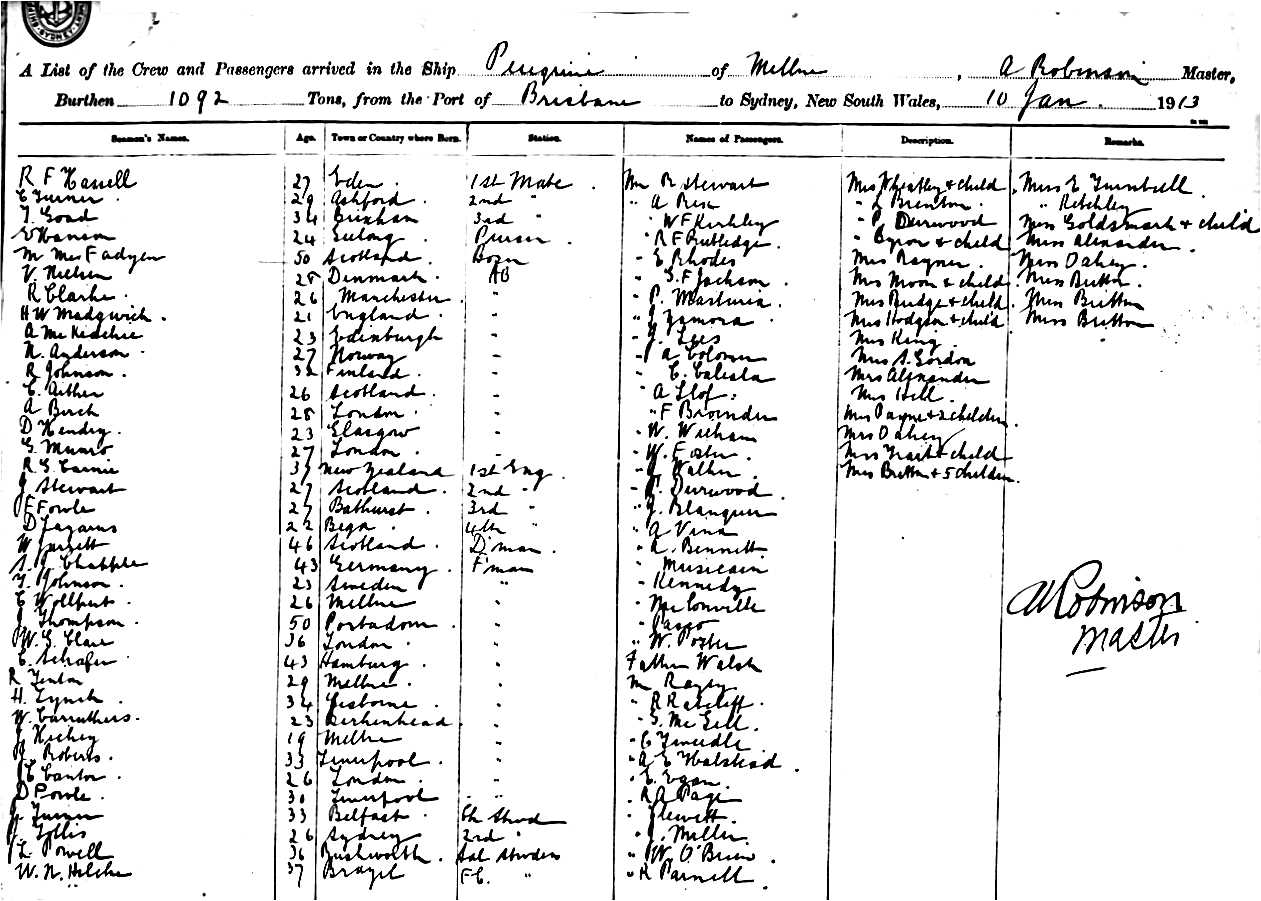 SYDNEY
A List of the Crew and Passengers arrived in the Ship Peregrine of Melbne, A Robinson Master,
Burthen 1092 Tons, from the Port of Brisbane to Sydney, New South Wales, 10 Jan. 1913
Seamen's Names. Age. Town or Country where Born. Station. Names of Passengers. Description. Remarks.
R F Hassell 27 Eden. 1st Mate. Mr R Stewart Mrs Wheatley & child Miss E Turnbull
C Turner 29 Ashford. 2nd " " A Brenton. "
34 Brixham 3rd " " W F Kirkley " P. Durwood Miss Goldsmark & child
24 Geelong Purser " R F Rutledge. " Byron & child Miss Alexander.
50 Scotland. Bosn " E Rhodes Mrs Rayner. Miss Dahey.
V. Nielsen 28 Denmark. AB " S. F Jackson. Mrs Moon & child. Miss Britton.
R Clarke. 26 Manchester. " " P. Mrs Budge & child. Miss Britton
H W Madgwich. 21 England. " " Zamora. Mrs Hodgson & child Miss Britton
A Mc Kedchie 23 Edinburgh " " J. Lees Mrs King.
N. Anderson. 27 Norway " " A Colomer Mrs S. Gordon
R Johnson. 32 Finland. " " C. Calesta Mrs Alexander
C. Aither 26 Scotland. " " A Llof. Mrs Hill.
A Birch 28 London. " " F Mrs Payne & 2 children
D Hendry. 23 Glasgow " " W. Mrs Dahey
G. Munro 27 London. " " W. Foster. Mrs Trait & child
R. G Cairnie 37 New Zealand 1st Eng. " J. Walker. Mrs Britton & 5 children.
J Stewart 27 Scotland. 2nd " " J. Durwood.
F Fowle 27 Bathurst. 3rd " " J. Blanquer
D 22 Bega. 4th " " A Vina
W Jarrett 46 Scotland. D'man. " A. Bennett
Chapple 43 Germany. F'man " Musicain
Johnson. 23 Sweden " " Kennedy
C Wollpert. 26 Melbne " " Mc Conville
J Thompson. 50 Portadown. " "
W. G. Clare 36 London. " " W. Porter
C. Schafer 43 Hamburg. " Father Walsh
R Fenton 29 Melbne. " Mr
H. Lynch. 34 Gisborne. " " R Ratcliff.
W. Carruthers. 23 Berkenhead. " " S. Mc Gill.
J Hickey 19 Melbne " " C Tweedle.
Roberts. 33 Liverpool. " " A E Halstead.
E Cantor. 26 London. " " E. Egan.
D Powle. 30 Liverpool " " R A Page
J. Turner 33 Belfast. Ch Stwd " Jewett.
J. Gollis 26 Sydney 2nd " " J. Miller
L Powell 36 Rushworth. Sal Stwdess " W. O'Brien.
W. N. 37 Brazil F C. " " R Parnell.
A Robinson
Master